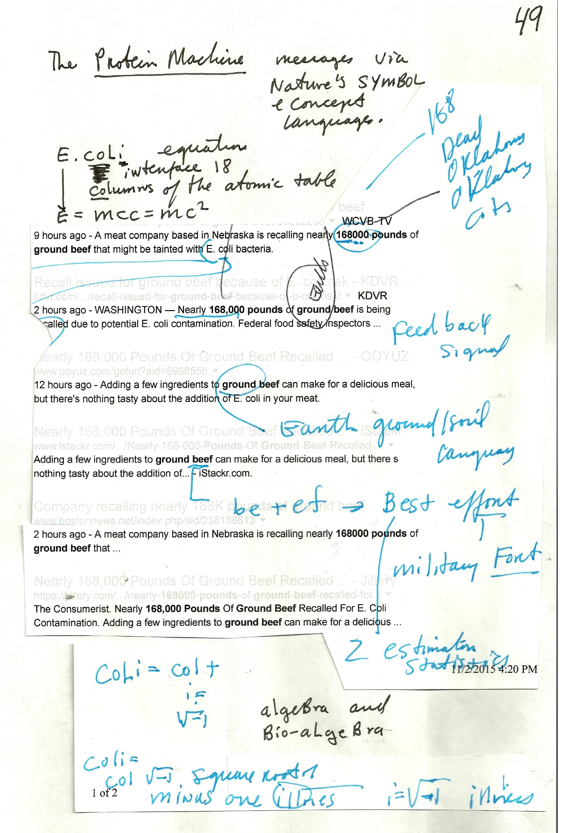 49
The Protein Machine messages via
Nature's SYMBOL
e Concept
Languages.
168
Dead
Oklahoma
Oklahoma
E.coli equation
interface 18
Columns of the atomic table
E = mcc = mc²
beef
WCVB-TV
9 hours ago - A meat company based in Nebraska is recalling nearly 168000 pounds of
ground beef that might be tainted with E. coli bacteria.
Recall issued for ground beef because of E. coli risk - KDVR
kdvr.com/.../recall-issued-for-ground-beef-because-of-e-coli
KDVR
2 hours ago - WASHINGTON — Nearly 168,000 pounds of ground beef is being
recalled due to potential E. coli contamination. Federal food safety inspectors ...
Feedback
signal
Nearly 168,000 Pounds Of Ground Beef Recalled ... - OOYUZ
www.ooyuz.com/geturl?aid=8988556
12 hours ago - Adding a few ingredients to ground beef can make for a delicious meal,
but there's nothing tasty about the addition of E. coli in your meat.
Earth ground/soil
Language
Nearly 168,000 Pounds Of Ground Beef Recalled ... iStackr
www.istackr.com/.../Nearly-168-000-Pounds-Of-Ground-Beef-Recalled-
Adding a few ingredients to ground beef can make for a delicious meal, but there s
nothing tasty about the addition of... - iStackr.com.
be + ef → Best effort
military Font
Company recalling nearly 168K pounds of ground beef
www.bostonnews.net/index.php/sid/238186613
2 hours ago - A meat company based in Nebraska is recalling nearly 168000 pounds of
ground beef that ...
Nearly 168,000 Pounds Of Ground Beef Recalled ... - Jittery
https://jittery.com/.../nearly-168000-pounds-of-ground-beef-recalled-for
The Consumerist. Nearly 168,000 Pounds Of Ground Beef Recalled For E. Coli
Contamination. Adding a few ingredients to ground beef can make for a delicious ...
2 estimation
statistics
11/2/2015 4:20 PM
CoLi = col +
i =
√-1
algeBra and
Bio-aLgeBra
Coli =
col √-1 square root of
minus one illness i=√-1 illness
1 of 2